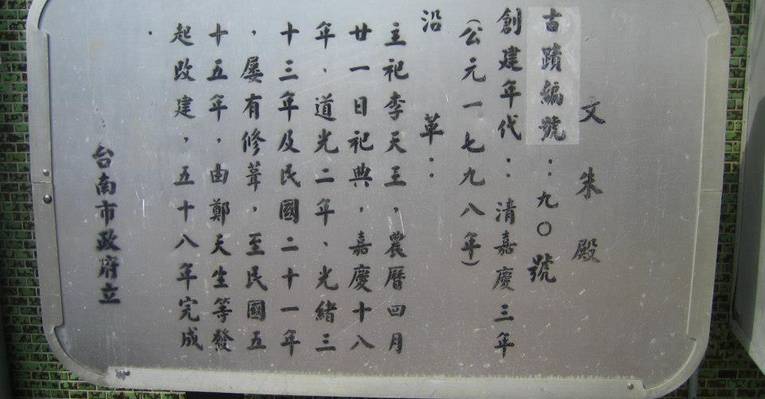 文朱殿
古蹟編號：九〇號
創建年代：清嘉慶三年
（公元一七九八年）
沿革：
主祀李天王，農曆四月
廿一日祀典，嘉慶十八
年、道光二年、光緒三
十三年及民國二十一年
，屢有修葺，至民國五
十五年，由鄭天生等發
起改建，五十八年完成
．
台南市政府立